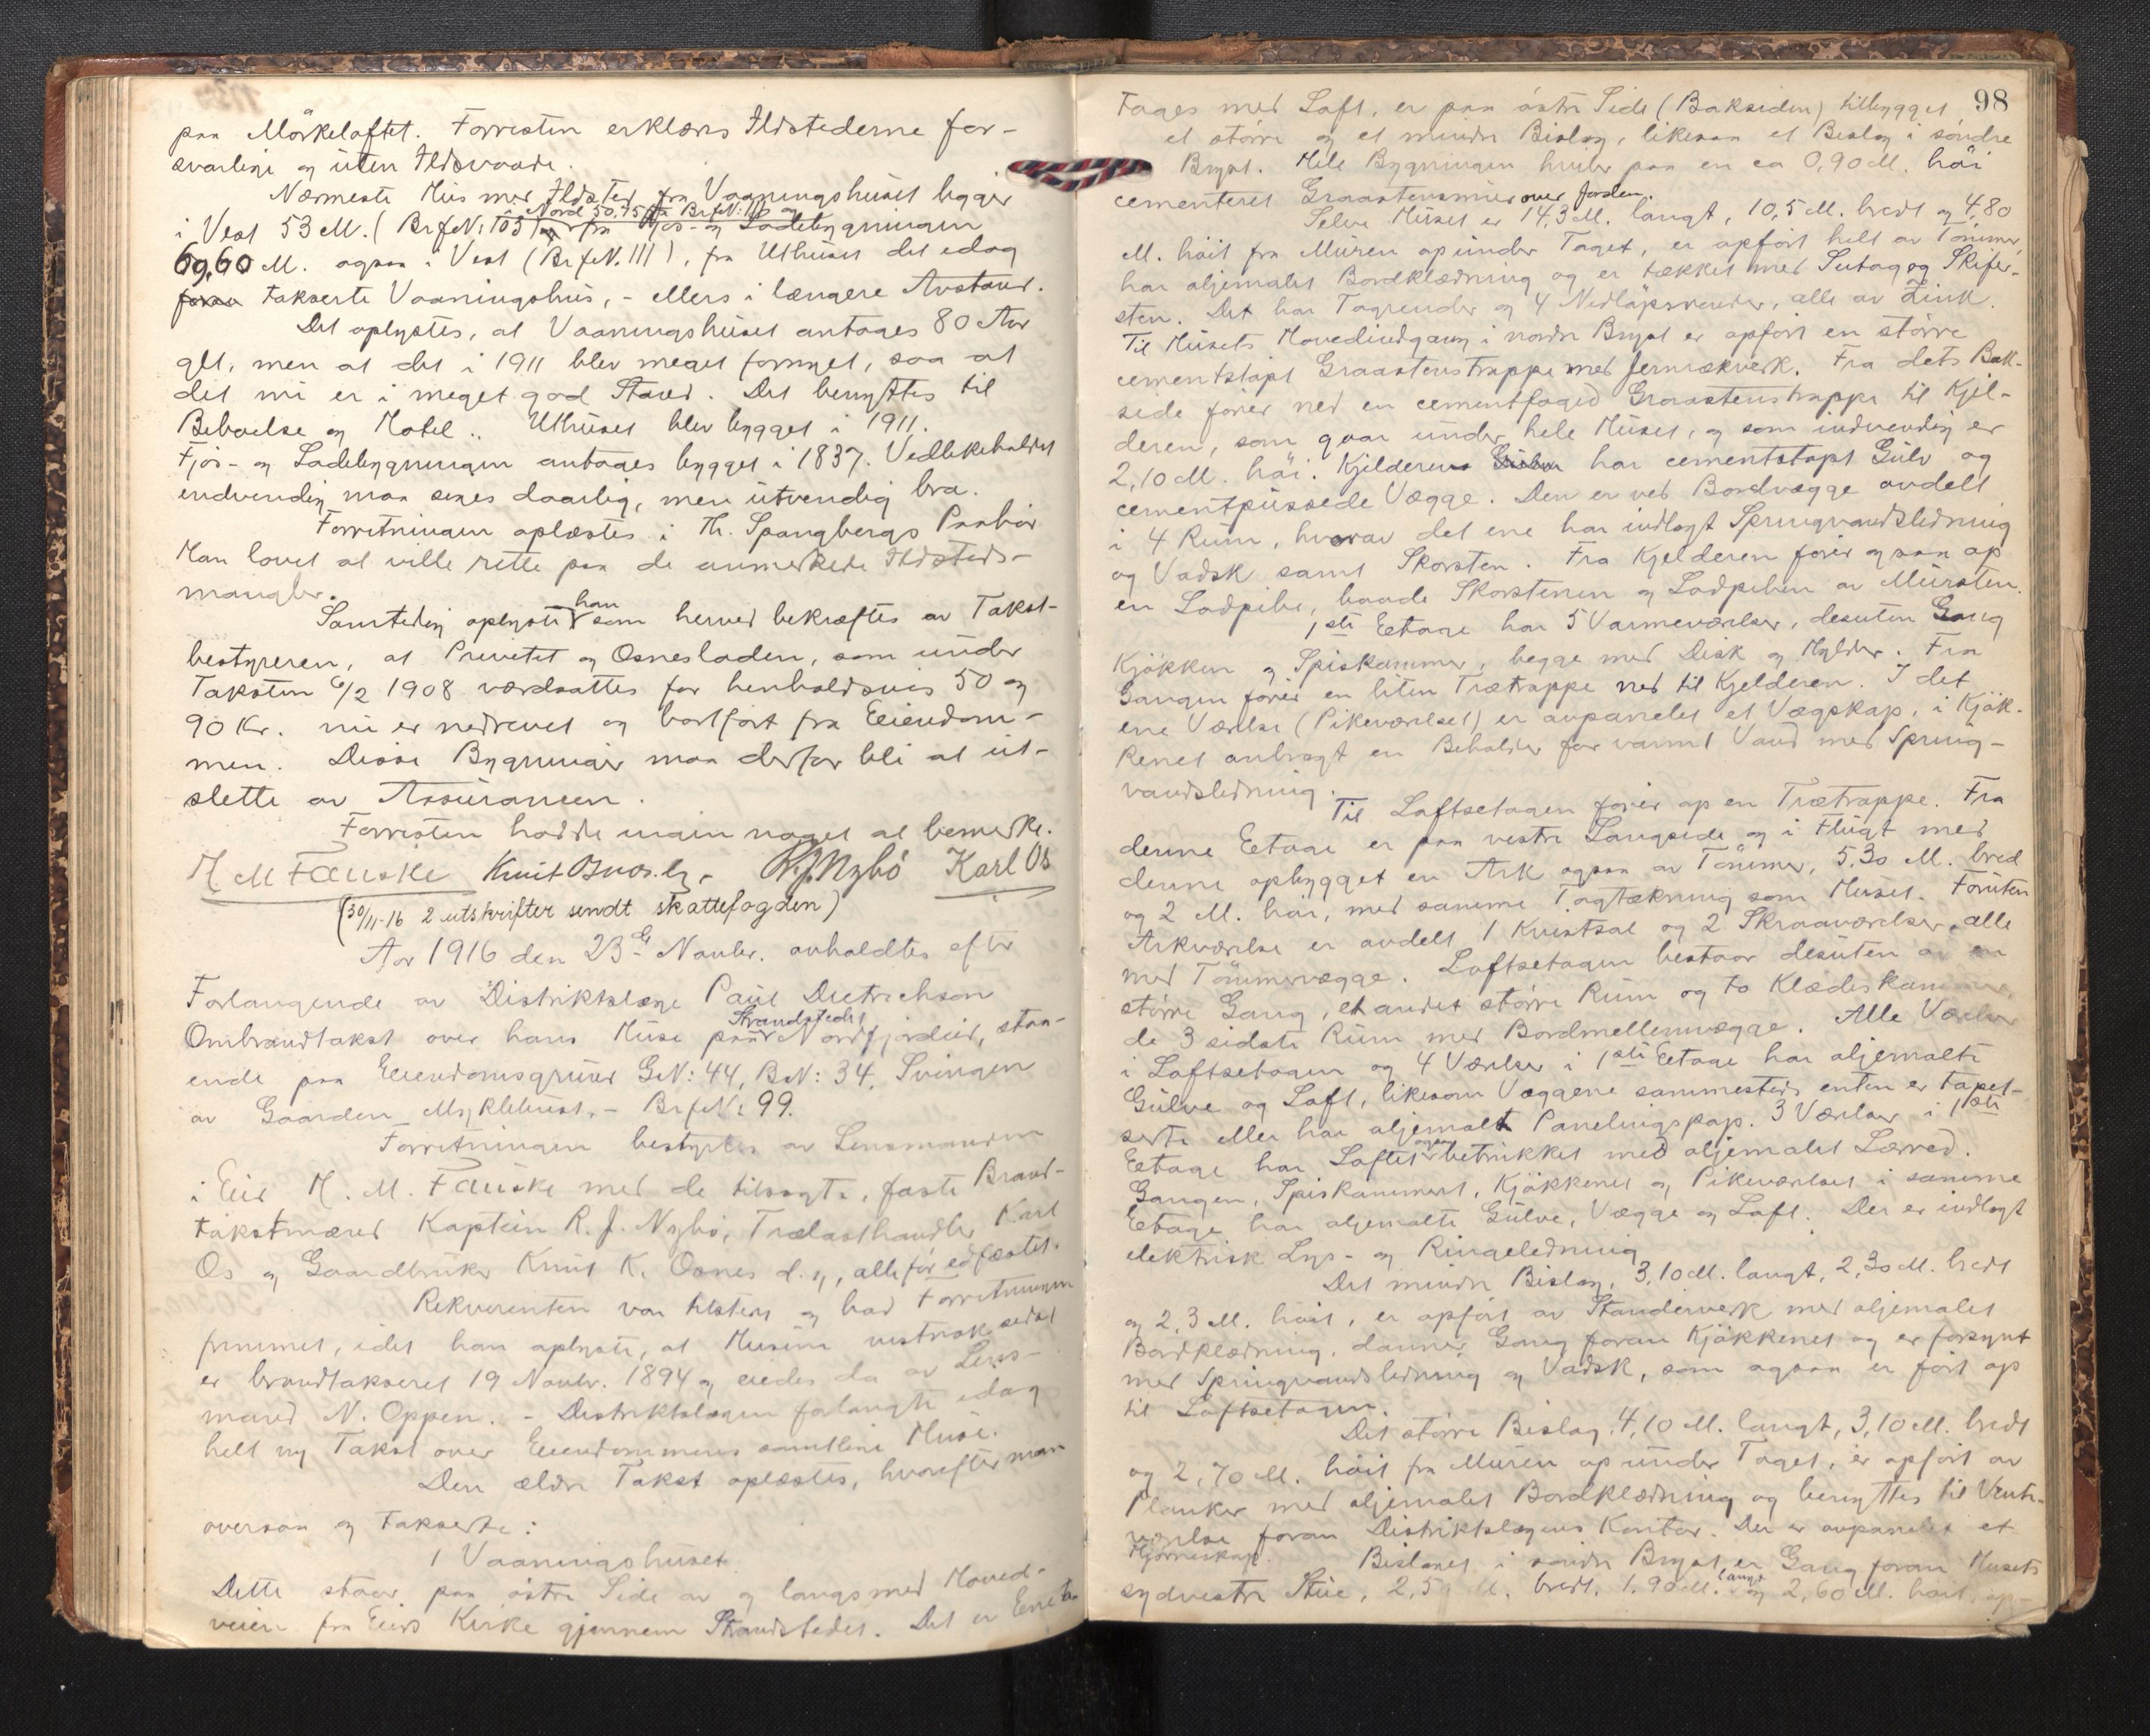 paa Mörkeloftet. Forresten erklæres Ildstederne for-
svarlige og uten Ildsvaade.
Nærmeste Hus med Ildsted fra Vaaningshuset ligger
Nord 50,75 fra BrfN: 110 og
i Vest 53 M. (BrfN: 105) og fra Fjös- og Ladebygningen
60,60 M. ogsaa i Vest (BrfN. 111), fra Uthuset det idag
foran takserte Vaaningshus, - ellers i længere Avstand.
Det oplystes, at Vaaningshuset antages 80 Aar
glt, men at det i 1911 blev meget fornyet, saa at
det nu er i meget god Stand. Det benyttes til
Beboelse og Hotel. Uthuset blev bygget i 1911.
Fjös- og Ladebygningen antages bygget i 1837. Vedlikeholdet
indvendig maa siges daarlig, men utvendig bra.
Forretningen oplæstes i Th. Spangbergs Paahör
Han lovet at ville rette paa de anmerkede Ildsteds-
mangler.
Samtidig oplyste han som herved bekræftes av Takst-
bestyreren, at Privetet og Osnesladen, som under
Taksten 6/2 1908 værdsattes for henholdsvis 50 og
90 Kr. nu er nedrevet og bortfört fra Eiendom-
men. Disse Bygninger maa derfor bli at ut-
slette av Assurancen.
Forresten hadde ingen noget at bemerke.
H M Fauske Knut Osnes. R.J. Nybö Karl Os
(30/11-16 2 utskrifter sendt skattefogden)
Aar 1916 den 23de Novbr. avholdtes efter
Forlangende av Distriktslæge Paul Dietrichson
Ombrandtakst over hans Huse paa Strandstedet Nordfjordeid, staa-
ende paa Eiendomsgrund GN: 44, BN: 34, Svingen
av Gaarden Myklebust, - BrfN: 99.
Forretningen bestyrtes av Lensmanden
i Eid H. M. Fauske med de tilsagte, faste Brand-
takstmænd Kaptein R. J. Nybö, Trælasthandler Karl
Os og Gaardbruker Knut K. Osnes d. y., alle för edfæstet.
Rekvirenten var tilstede og bad Forretningen
fremmet, idet han oplyste, at Husene vistnok sidst
er brandtaksert 19 Novbr. 1894 og eiedes da av Lens-
mand N. Oppen. - Distriktslægen forlangte idag
helt ny Takst over Eiendommens samtlige Huse.
Den ældre Takst oplæstes, hvorefter man
oversaa og takserte:
1 Vaaningshuset
Dette staar paa östre Side av og langsmed Hoved-
veien fra Eids Kirke gjennem Strandstedet. Det er Een eta
98
tages med Loft, er paa östre Side (Baksiden) tilbygget
et större og et mindre Bislag, likesaa et Bislag i söndre
Bryst. Hele Bygningen hviler paa en ca 0,90 M. höi
cementeret Graastensmur over Jorden.
Selve Huset er 14,3 M. langt, 10,5 M. bredt og 4,80
M. höit fra Muren op under Taget, er opfört helt av Tömmer,
har oljemalet Bordklædning og er tækket med Sutag og Skifer-
sten. Det har Tagrender og 4 Nedlöpsrender, alle av Zink.
Til Husets Hovedindgang i nordre Bryst er opfört en större
cementstöpt Graastenstrappe med Jernrækverk. Fra dets Bak-
side förer ned en cementfuged Graastenstrappe til Kjel-
deren, som gaar under hele Huset, og som indvendig er
2,10 M. höi. Kjelderen Gulv har cementstöpt Gulv og
cementpussede Vægge. Den er ved Bordvægge avdelt
i 4 Rum, hvorav det ene har indlagt Springvandsledning
og Vadsk samt Skorsten. Fra Kjelderen förer ogsaa op
en Lodpibe, baade Skorstenen og Lodpiben av Mursten.
1ste Eetage har 5 Varmeværelser, desuten Gang
Kjökken og Spiskammer, begge med Disk og Hylder. Fra
Gangen förer en liten Trætrappe ned til Kjelderen. I det
ene Værelse (Pikeværelset) er avpanelet et Vægskap, i Kjök-
kenet anbragt en Beholder for varmt Vand med Spring-
vandsledning.
Til Loftsetagen förer op en Trætrappe. Fra
denne Eetage er paa vestre Langside og i Flugt med
denne opbygget en Ark ogsaa av Tömmer, 5,30 M. bred
og 2 M. höi, med samme Tagtækning som Huset. Foruten
Arkværelse er avdelt 1 Kvistsal og 2 Skraaværelser, alle
med Tömmervægge. Loftsetagen bestaar desuten av en
större Gang, et andet större Rum og to Klædeskammer,
de 3 sidste Rum med Bordmellemvægge. Alle Værelser
i Loftsetagen og 4 Værelser i 1ste Eetage har oljemalte
Gulve og Loft, likesom Væggene sammesteds enten er tapet-
serte eller har oljemalt Panelingspap. 3 Værelser i 1ste
Eetage har Loftet ogsaa betrukket med oljemalet Lærred.
Gangen, Spiskammeret, Kjökkenet og Pikeværelset i samme
Eetage har oljemalte Gulve, Vægge og Loft. Der er indlagt
elektrisk Lys- og Ringeledning
Det mindre Bislag, 3,10 M. langt, 2,30 M. bredt
og 2,3 M. höit, er opfört av Stænderverk med oljemalet
Bordklædning, danner Gang foran Kjökkenet og er forsynt
med Springvandsledning og Vadsk, som ogsaa er fört op
til Loftsetagen.
Det större Bislag, 4,10 M. langt, 3,10 M. bredt
og 2,70 M. höit fra Muren op under Taget, er opfört av
Planker med oljemalet Bordklædning og benyttes til Vente-
værelse foran Distriktslægens Kontor. Der er avpanelet et
Hjörneskap.
Bislaget i söndre Bryst er Gang foran Husets
sydvestre Stue, 2,5 M. bredt, 1,90 M. langt og 2,60 M. höit, op-